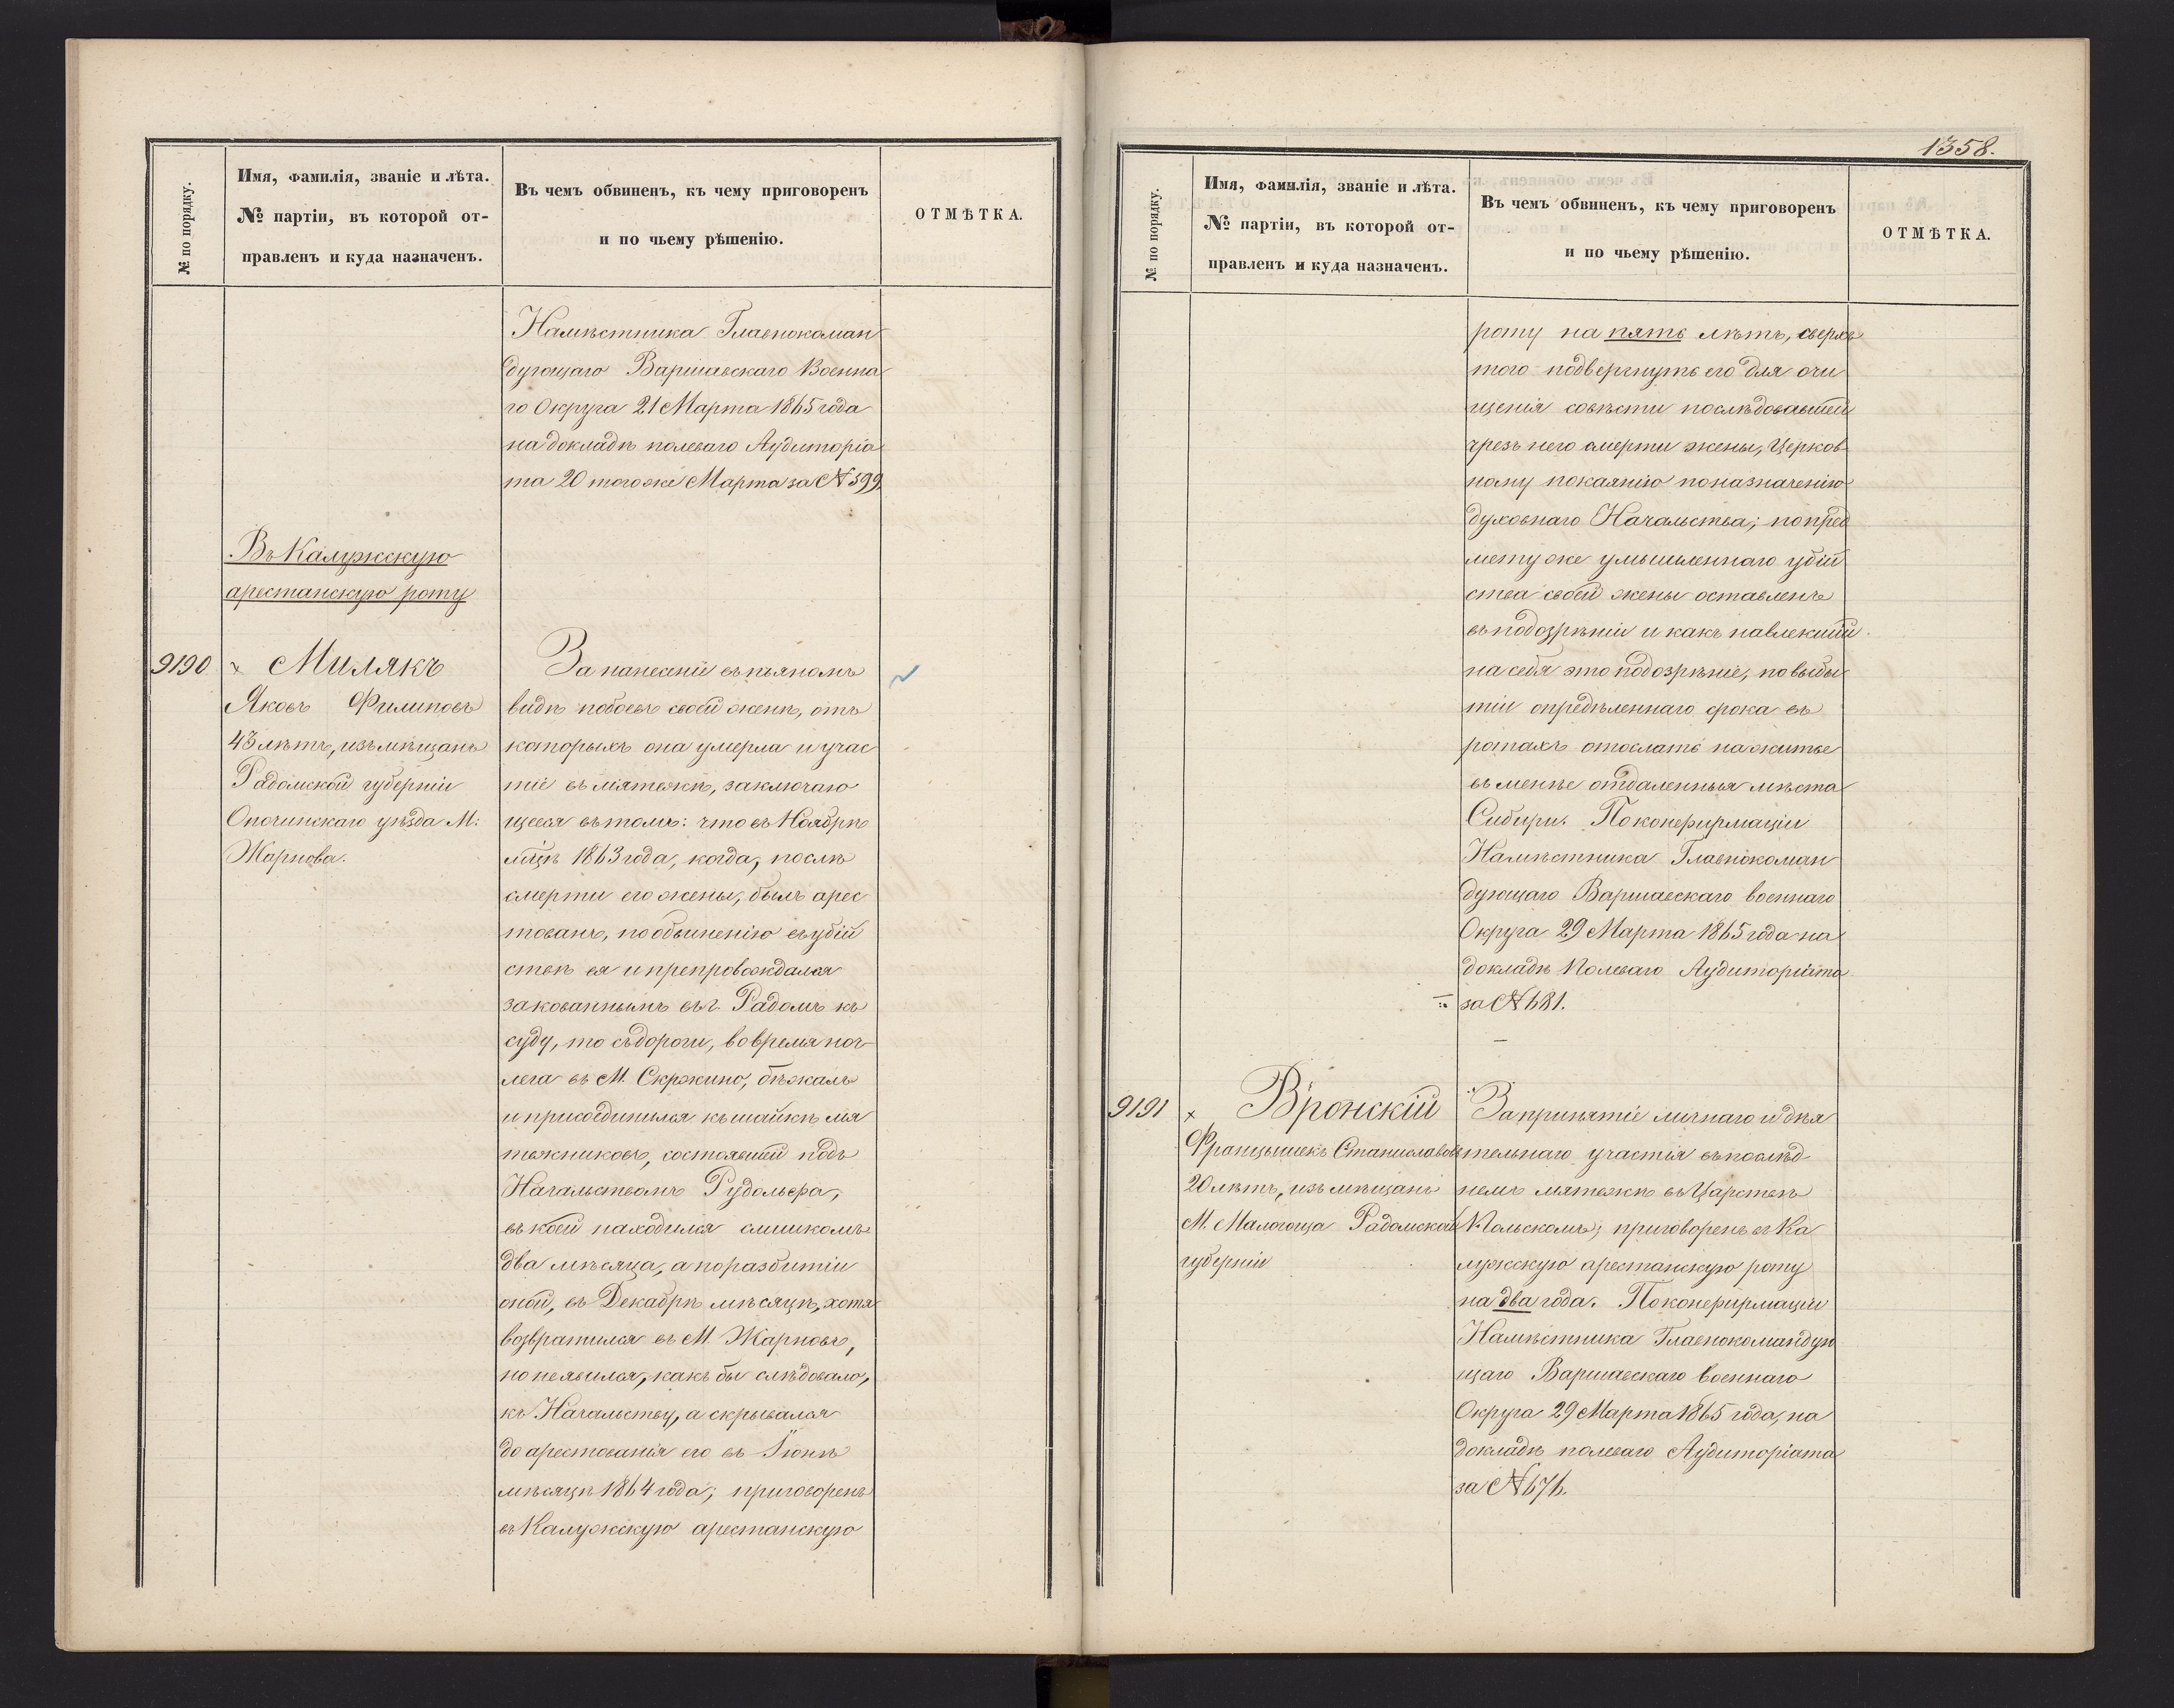 № по порядку.
Имя, фамилія, званіе и лѣта.
№ партіи, въ которой от-
правленъ и куда назначенъ.
Въ чемъ обвиненъ, къ чему приговоренъ
и по чьему рѣшенію.
ОТМѢТКА.
Намѣстника Главнокоман
дующаго Варшавскаго Военна
го Округа 21 Марта 1865 года
на докладѣ полеваго Аудиторіа
та 20 того же Марта за № 599.
Въ Калужскую
арестанскую роту
9190
× Милякъ
Яковъ Филиповъ
43 лѣтъ, изъ мѣщанъ
Радомской губерніи
Опочинскаго уѣзда М:
Жарнова.
За нанесеніе въ пьяномъ
видѣ побоевъ своей женѣ, отъ
которыхъ она умерла и учас
тіе въ мятежѣ, заключаю
щееся въ томъ: что въ Ноябрѣ
мѣцѣ 1863 года, когда, послѣ
смерти его жены, былъ арес
тованъ, по обвиненію въ убій
ствѣ ея и препровождался
закованнымъ въ г. Радомъ къ
суду, то съ дороги, во время ноч
лега въ М. Скржино, бѣжалъ
и присоединился къ шайкѣ мя
тежниковъ, состоявшей подъ
Начальствомъ Рудольфа,
въ коей находился слишкомъ
два мѣсяца, а по разбитіи
оной, въ Декабрѣ мѣсяцѣ, хотя
возвратился въ М. Жарновъ,
но не явился, какъ бы слѣдовало,
къ Начальству, а скрывался
до арестованія его въ Іюнѣ
мѣсяцѣ 1864 года; приговоренъ
въ Калужскую арестанскую
1358.
№ по порядку.
Имя, фамилія, званіе и лѣта.
№ партіи, въ которой от-
правленъ и куда назначенъ.
Въ чемъ обвиненъ, къ чему приговоренъ
и по чьему рѣшенію.
ОТМѢТКА.
роту на пять лѣтъ, сверхъ
того подвергнуть его для очи
щенія совѣсти послѣдовавшей
чрезъ него смерти жены, Церков
ному покаянію по назначенію
духовнаго Начальства; по пред
мету же умышленнаго убій
ства своей жены оставленъ
въ подозрѣніи и какъ навлекшій
на себя это подозрѣніе, по выбы
тіи опредѣленнаго срока въ
ротахъ отослать на житье
въ менѣе отдаленныя мѣста
Сибири. По конфирмаціи
Намѣстника Главнокоман
дующаго Варшавскаго военнаго
Округа 29 Марта 1865 года на
докладѣ Полеваго Аудиторіата
за № 681.
9191
× Вронскій
Францишекъ Станиславовъ
20 лѣтъ, изъ мѣщанъ
М. Малогоща Радомской
губерніи
За принятіе личнаго и дѣя
тельнаго участія въ послѣд
немъ мятежѣ въ Царствѣ
Польскомъ; приговоренъ въ Ка
лужскую арестанскую роту
на два года. По конфирмаціи
Намѣстника Главнокомандую
щаго Варшавскаго военнаго
Округа 29 Марта 1865 года, на
докладѣ полеваго Аудиторіата
за № 676.